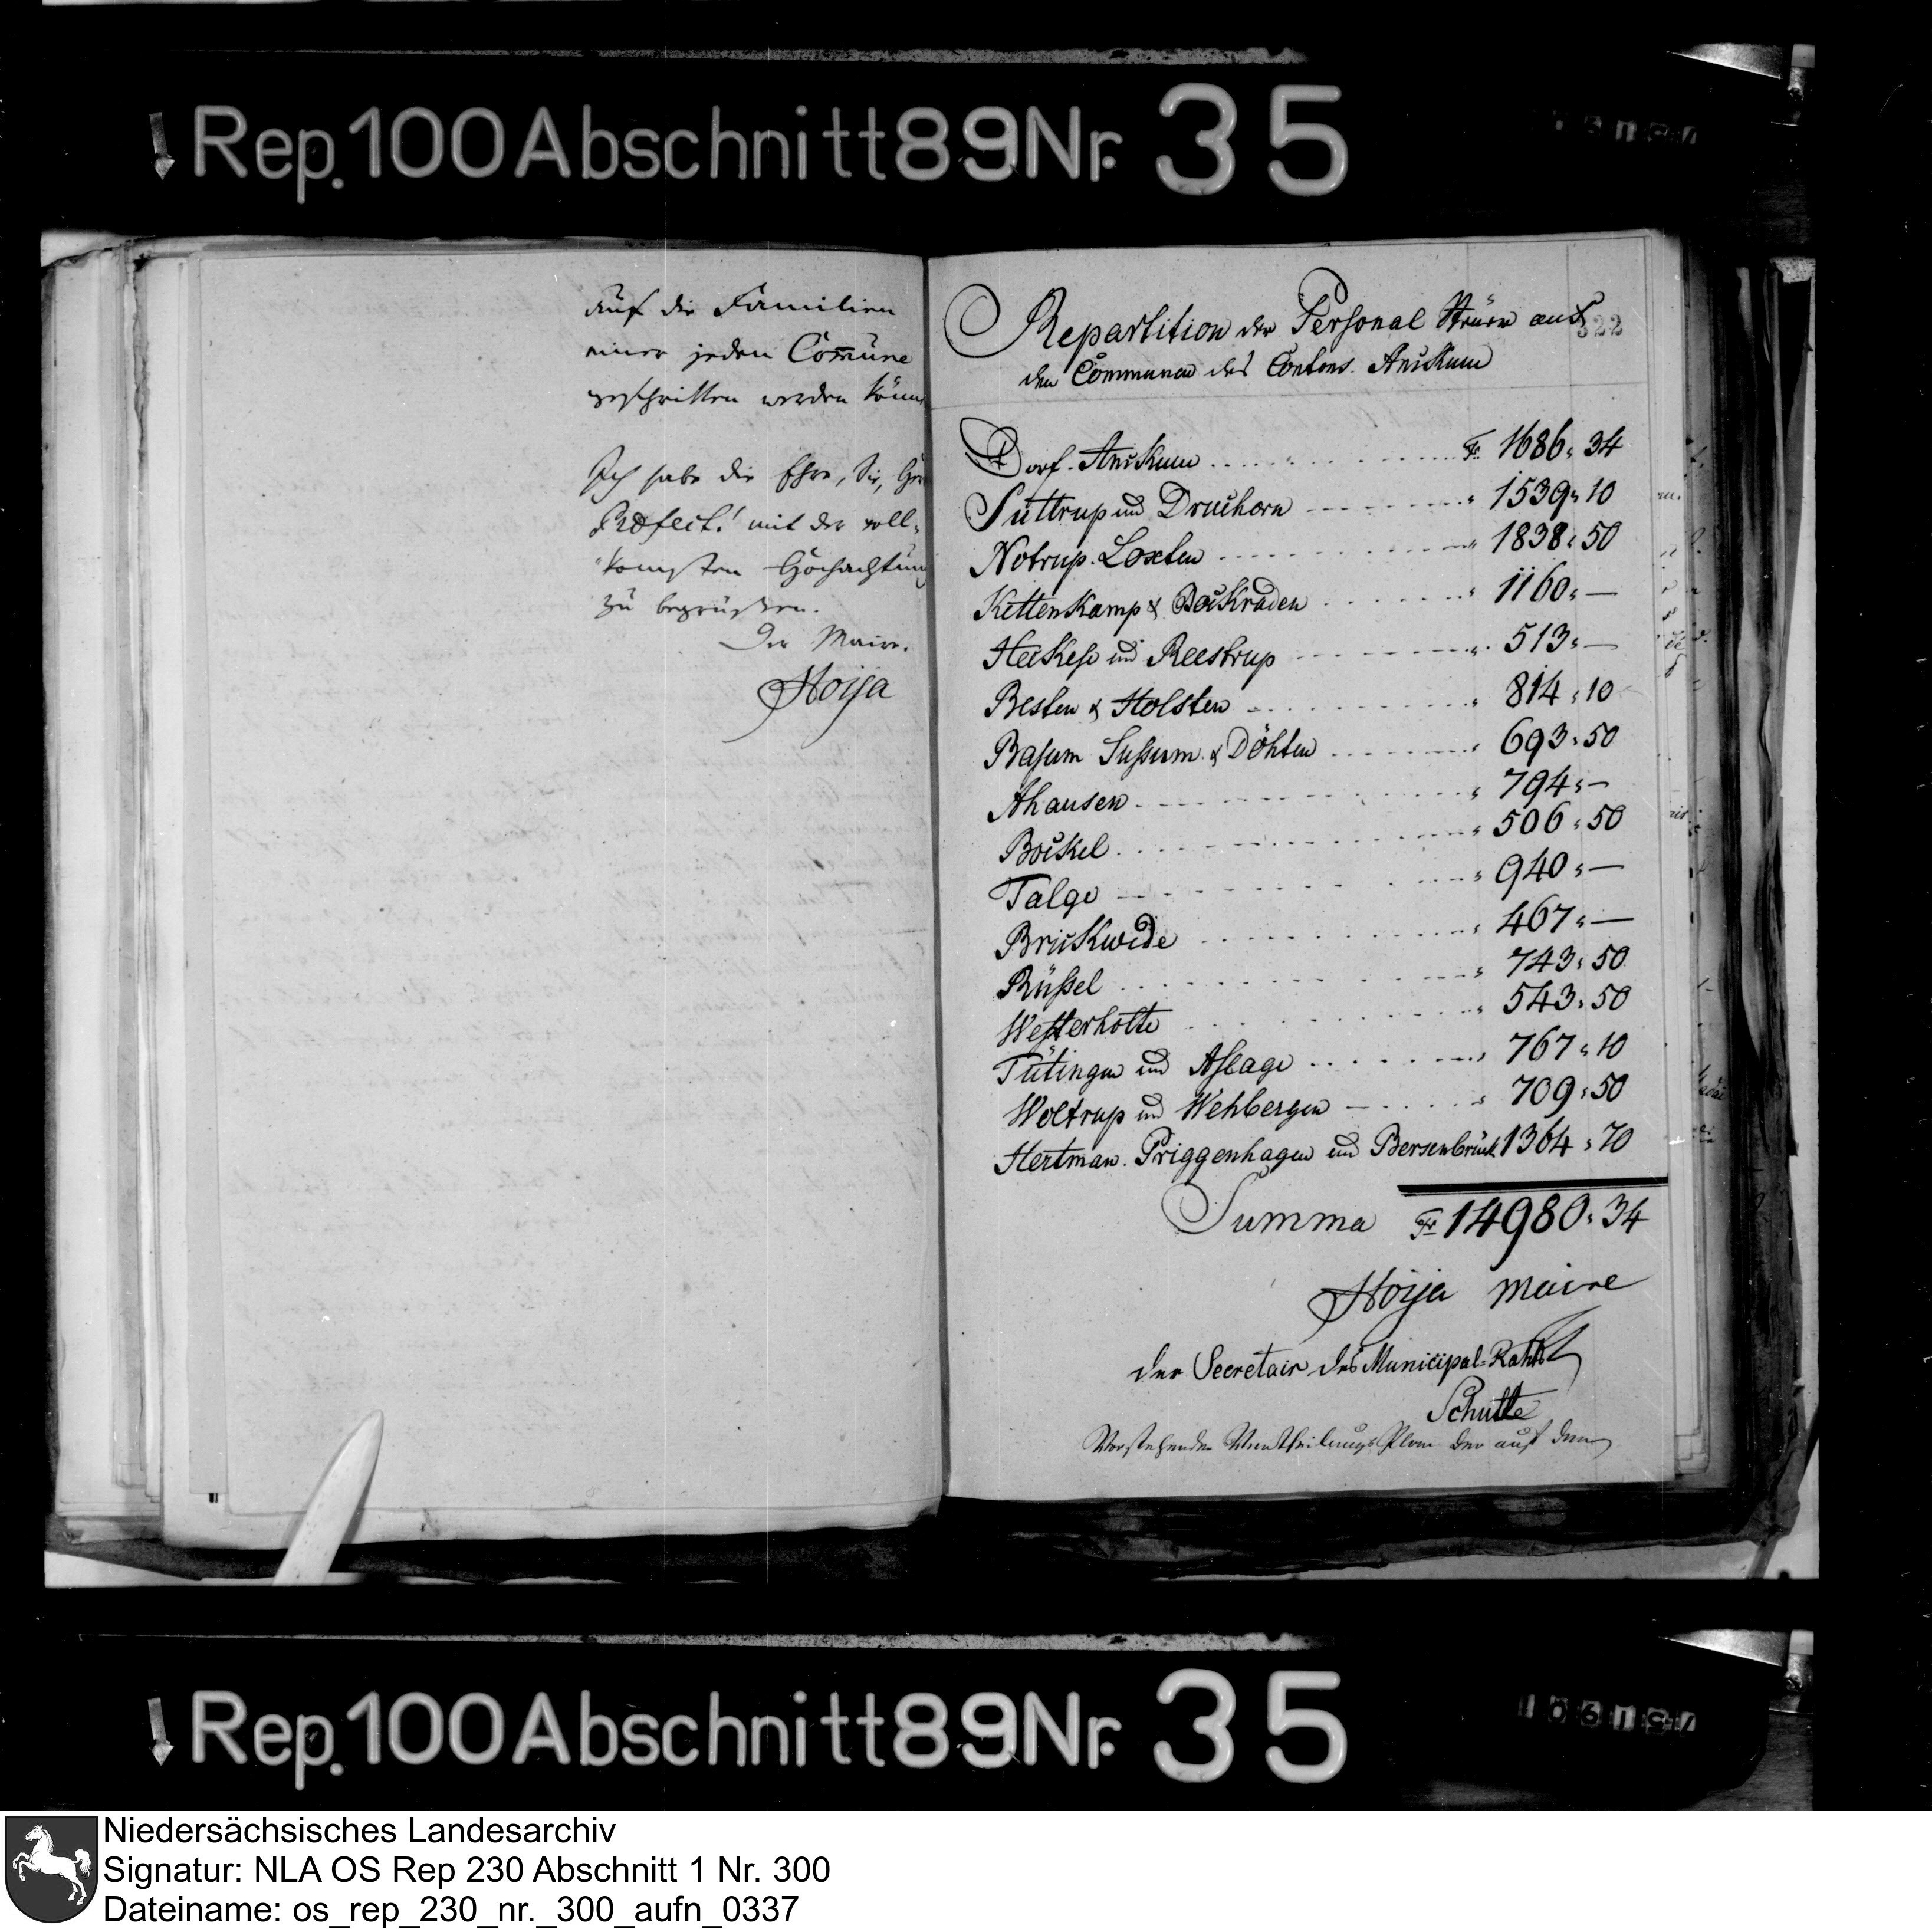 Rep. 100 Abschnitt 89 Nr. 35
auf die Familien
einer jeden Com̄une
geschritten werden könn
Ich habe die Ehre, Sie, Her
Präfect! mit der voll-
komsten Hochachtung
zu begrüßen.
Der Maire.
Hoija
322
Repartition der Personal Steuer auf
den Communen des Cantons. Anckum
Dorf. Anckum Fr. 1686, 34
Suttrup und Druchorn " 1539, 10
Notrup. Loxten " 1838, 50
Kettenkamp & Bockraden " 1160, —
Heckese und Reestrup " 513, —
Besten & Holsten " 814, 10
Basum Sussum & Döhten " 693, 50
Ahausen " 794, —
Bockel " 506, 50
Talge " 940, —
Brickwede " 467, —
Rüssel " 743, 50
Westerholte " 543, 50
Tütingen und Aslage " 767, 10
Woltrup und Wehbergen " 709, 50
Hertman. Priggenhagen und Bersenbrück 1364, 70
Summa Fr 14980, 34
Hoija Maire
der Secretair des Municipal-Raths
Schutte
Vorstehender Vertheilungs Plan der auf den
Rep. 100 Abschnitt 89 Nr. 35
Niedersächsisches Landesarchiv
Signatur: NLA OS Rep 230 Abschnitt 1 Nr. 300
Dateiname: os_rep_230_nr._300_aufn_0337